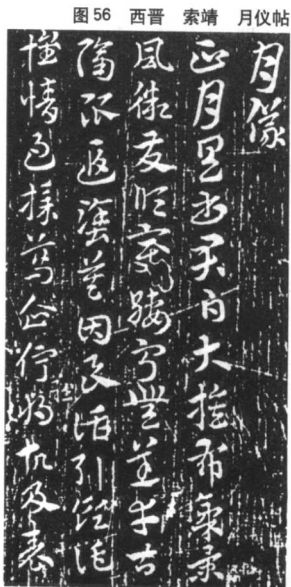 图56 西晋 索靖 月仪帖
月儀
正月具書君白大蔟布氣景
風微發順變綏寧無恙幸甚
隔限遐塗莫因良話引領託
懷情過採葛企佇難將故及表